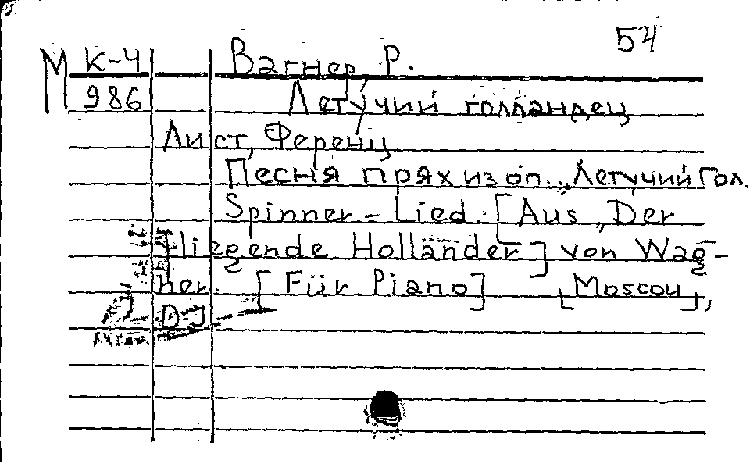 54
М К-4 Вагнер, Р.
986 Летучий голландец
Лист, Ференц
Песня прях из оп. „Летучий Гол.
Spinner-Lied. [Aus „Der
Fliegende Holländer] von Wag-
ner. [Für Piano] [Moscou],